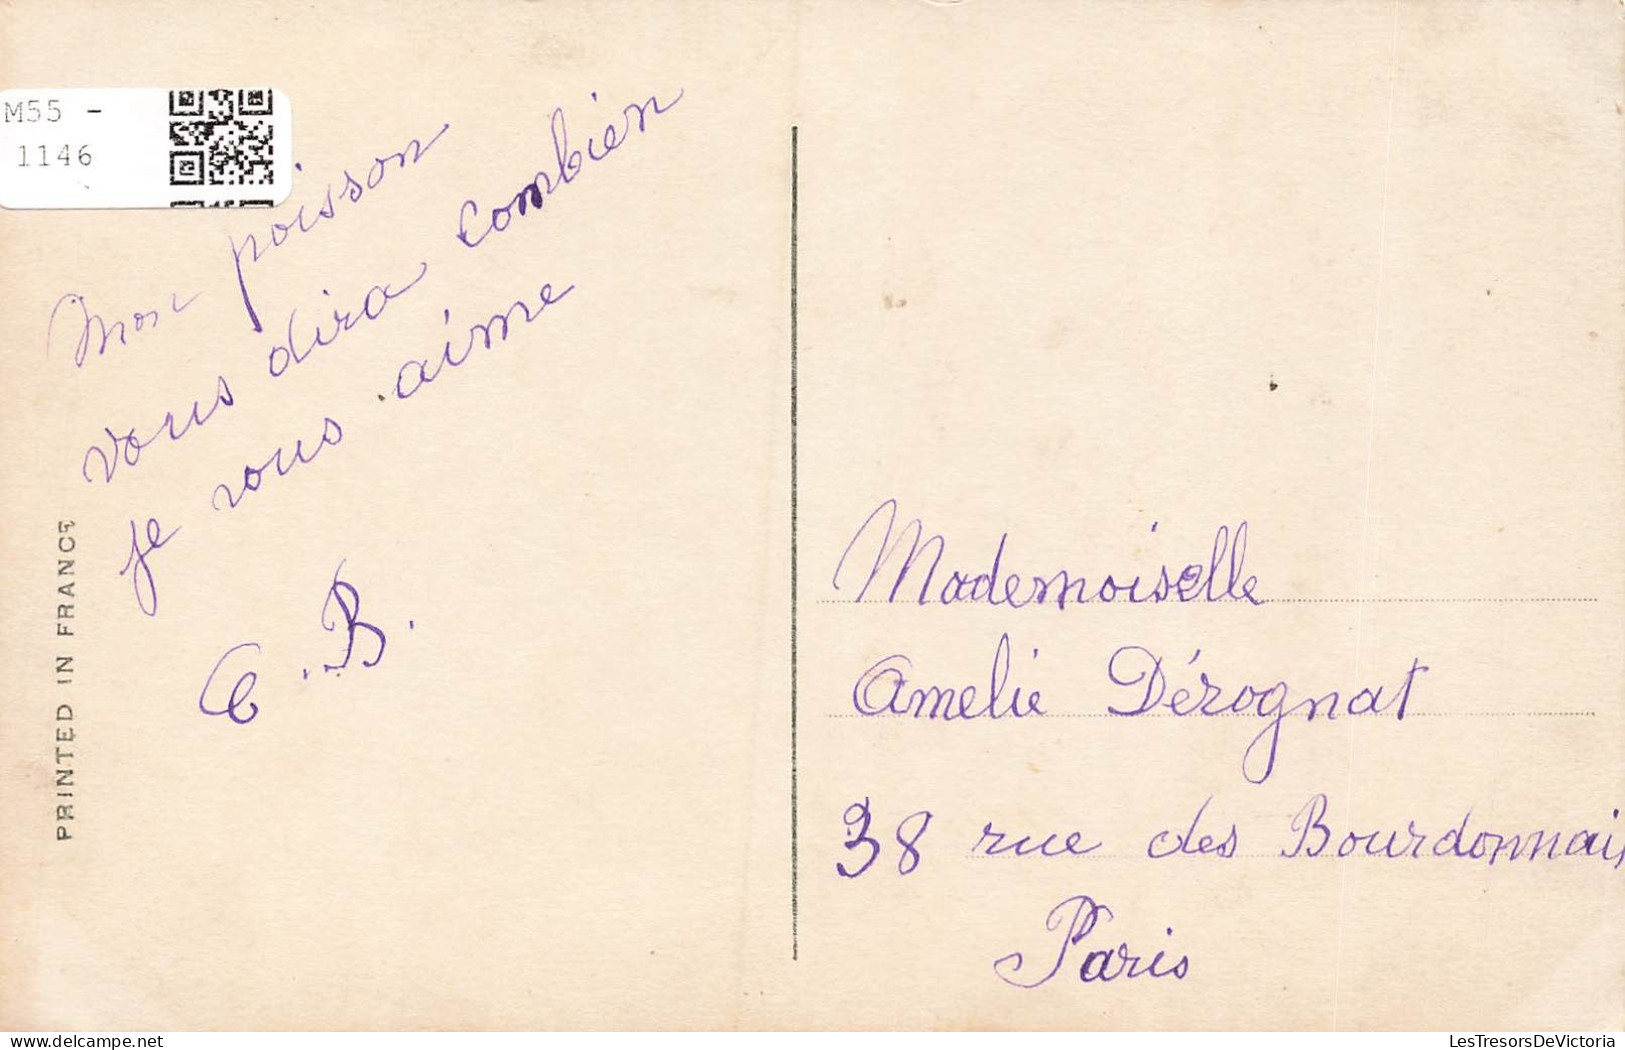 M55 -
1146
Mon poisson
vous dira combien
je vous aime
C. B.
PRINTED IN FRANCE
Mademoiselle
Amelie Dérognat
38 rue des Bourdonnais
Paris
delcampe.net
LesTresorsDeVictoria